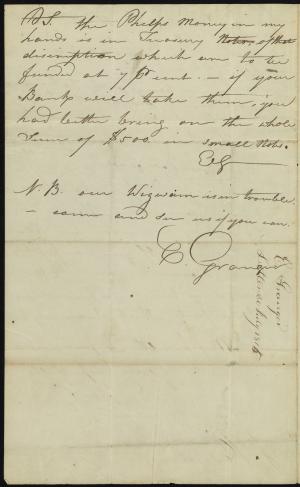 P.S. the Phelps Money in my
hands is in Treasury Notes, of that
discription which are to be
funded at 7 pr cent. — if your
Bank will take them, you
had better bring on the whole
Sum of $500. in small Notes.
EG
N.B. our Wigwam is in trouble
— come and see us if you can.
E. Granger
E. Granger
July 1816